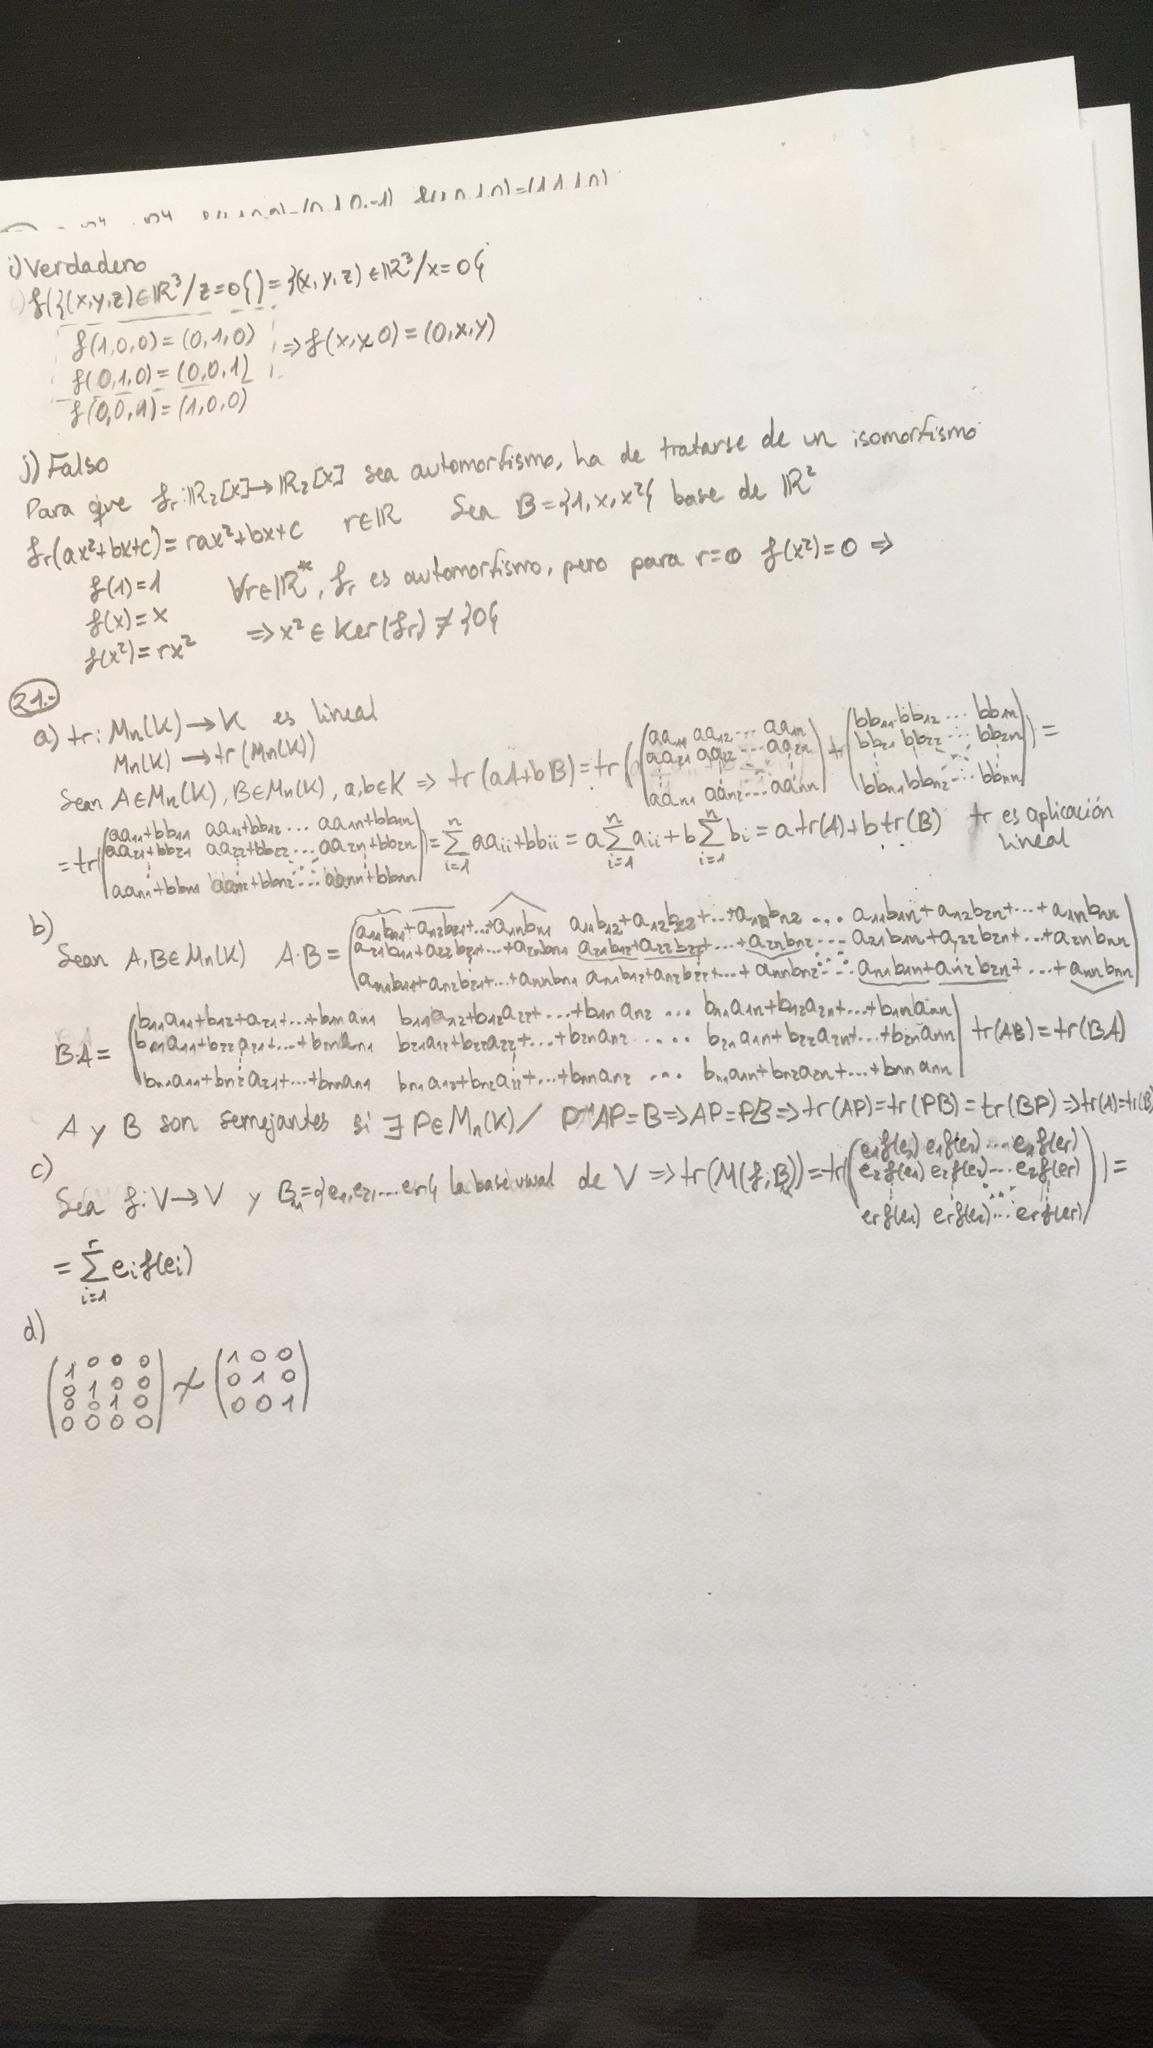 i) Verdadero
f({(x,y,z)∈ℝ³/z=0}) = {(x,y,z)∈ℝ³/x=0}
f(1,0,0)=(0,1,0)
f(0,1,0)=(0,0,1) ⇒ f(x,y,0)=(0,x,y)
f(0,0,1)=(1,0,0)
j) Falso
Para que fr:ℝ₂[x]→ℝ₂[x] sea automorfismo, ha de tratarse de un isomorfismo
fr(ax²+bx+c)=rax²+bx+c r∈ℝ Sea B={1,x,x²} base de ℝ²
f(1)=1
f(x)=x ∀r∈ℝ*, fr es automorfismo, pero para r=0 f(x²)=0 ⇒
f(x²)=rx² ⇒ x²∈Ker(fr)≠{0}
21.-
a) tr: Mn(K)→K es lineal
Mn(K)→tr(Mn(K))
Sean A∈Mn(K), B∈Mn(K), a,b∈K ⇒ tr(aA+bB)=tr((aa11 aa12 ... aa1n
aa21 aa22 ... aa2n
aan1 aan2 ... aann) + (bb11 bb12 ... bb1n
bb21 bb22 ... bb2n
bbn1 bbn2 ... bbnn)) =
=tr(aa11+bb11 aa12+bb12 ... aa1n+bb1n
aa21+bb21 aa22+bb22 ... aa2n+bb2n
aan1+bbn1 aan2+bbn2 ... aann+bbnn) = Σ aaii+bbii = a Σ aii + b Σ bi = a tr(A)+b tr(B) tr es aplicación
lineal
b)
Sean A,B∈Mn(K) A·B = (a11b11+a12b21+...+a1nbn1 a11b12+a12b22+...+a1nbn2 ... a11b1n+a12b2n+...+a1nbnn
a21b11+a22b21+...+a2nbn1 a21b12+a22b22+...+a2nbn2 ... a21b1n+a22b2n+...+a2nbnn
an1b11+an2b21+...+annbn1 an1b12+an2b22+...+annbn2 ... an1b1n+an2b2n+...+annbnn)
B·A = (b11a11+b12+a21+...+b1nan1 b11a12+b12a22+...+b1nan2 ... b11a1n+b12a2n+...+b1nann
b21a11+b22a21+...+b2nan1 b21a12+b22a22+...+b2nan2 ... b21a1n+b22a2n+...+b2nann
bn1a11+bn2a21+...+bnnan1 bn1a12+bn2a22+...+bnnan2 ... bn1a1n+bn2a2n+...+bnnann) tr(AB)=tr(BA)
A y B son semejantes si ∃P∈Mn(K)/ P⁻¹AP=B⇒AP=PB⇒tr(AP)=tr(PB)=tr(BP)⇒tr(A)=tr(B)
c)
Sea f:V→V y Bu={e1,e2,...er} la base usual de V ⇒ tr(M(f;Bu))=tr((e1f(e1) e1f(e2) ... e1f(er)
e2f(e1) e2f(e2) ... e2f(er)
erf(e1) erf(e2) ... erf(er))) =
= Σ eif(ei)
d)
(1 0 0 0
0 1 0 0
0 0 1 0
0 0 0 0) ≁ (1 0 0
0 1 0
0 0 1)